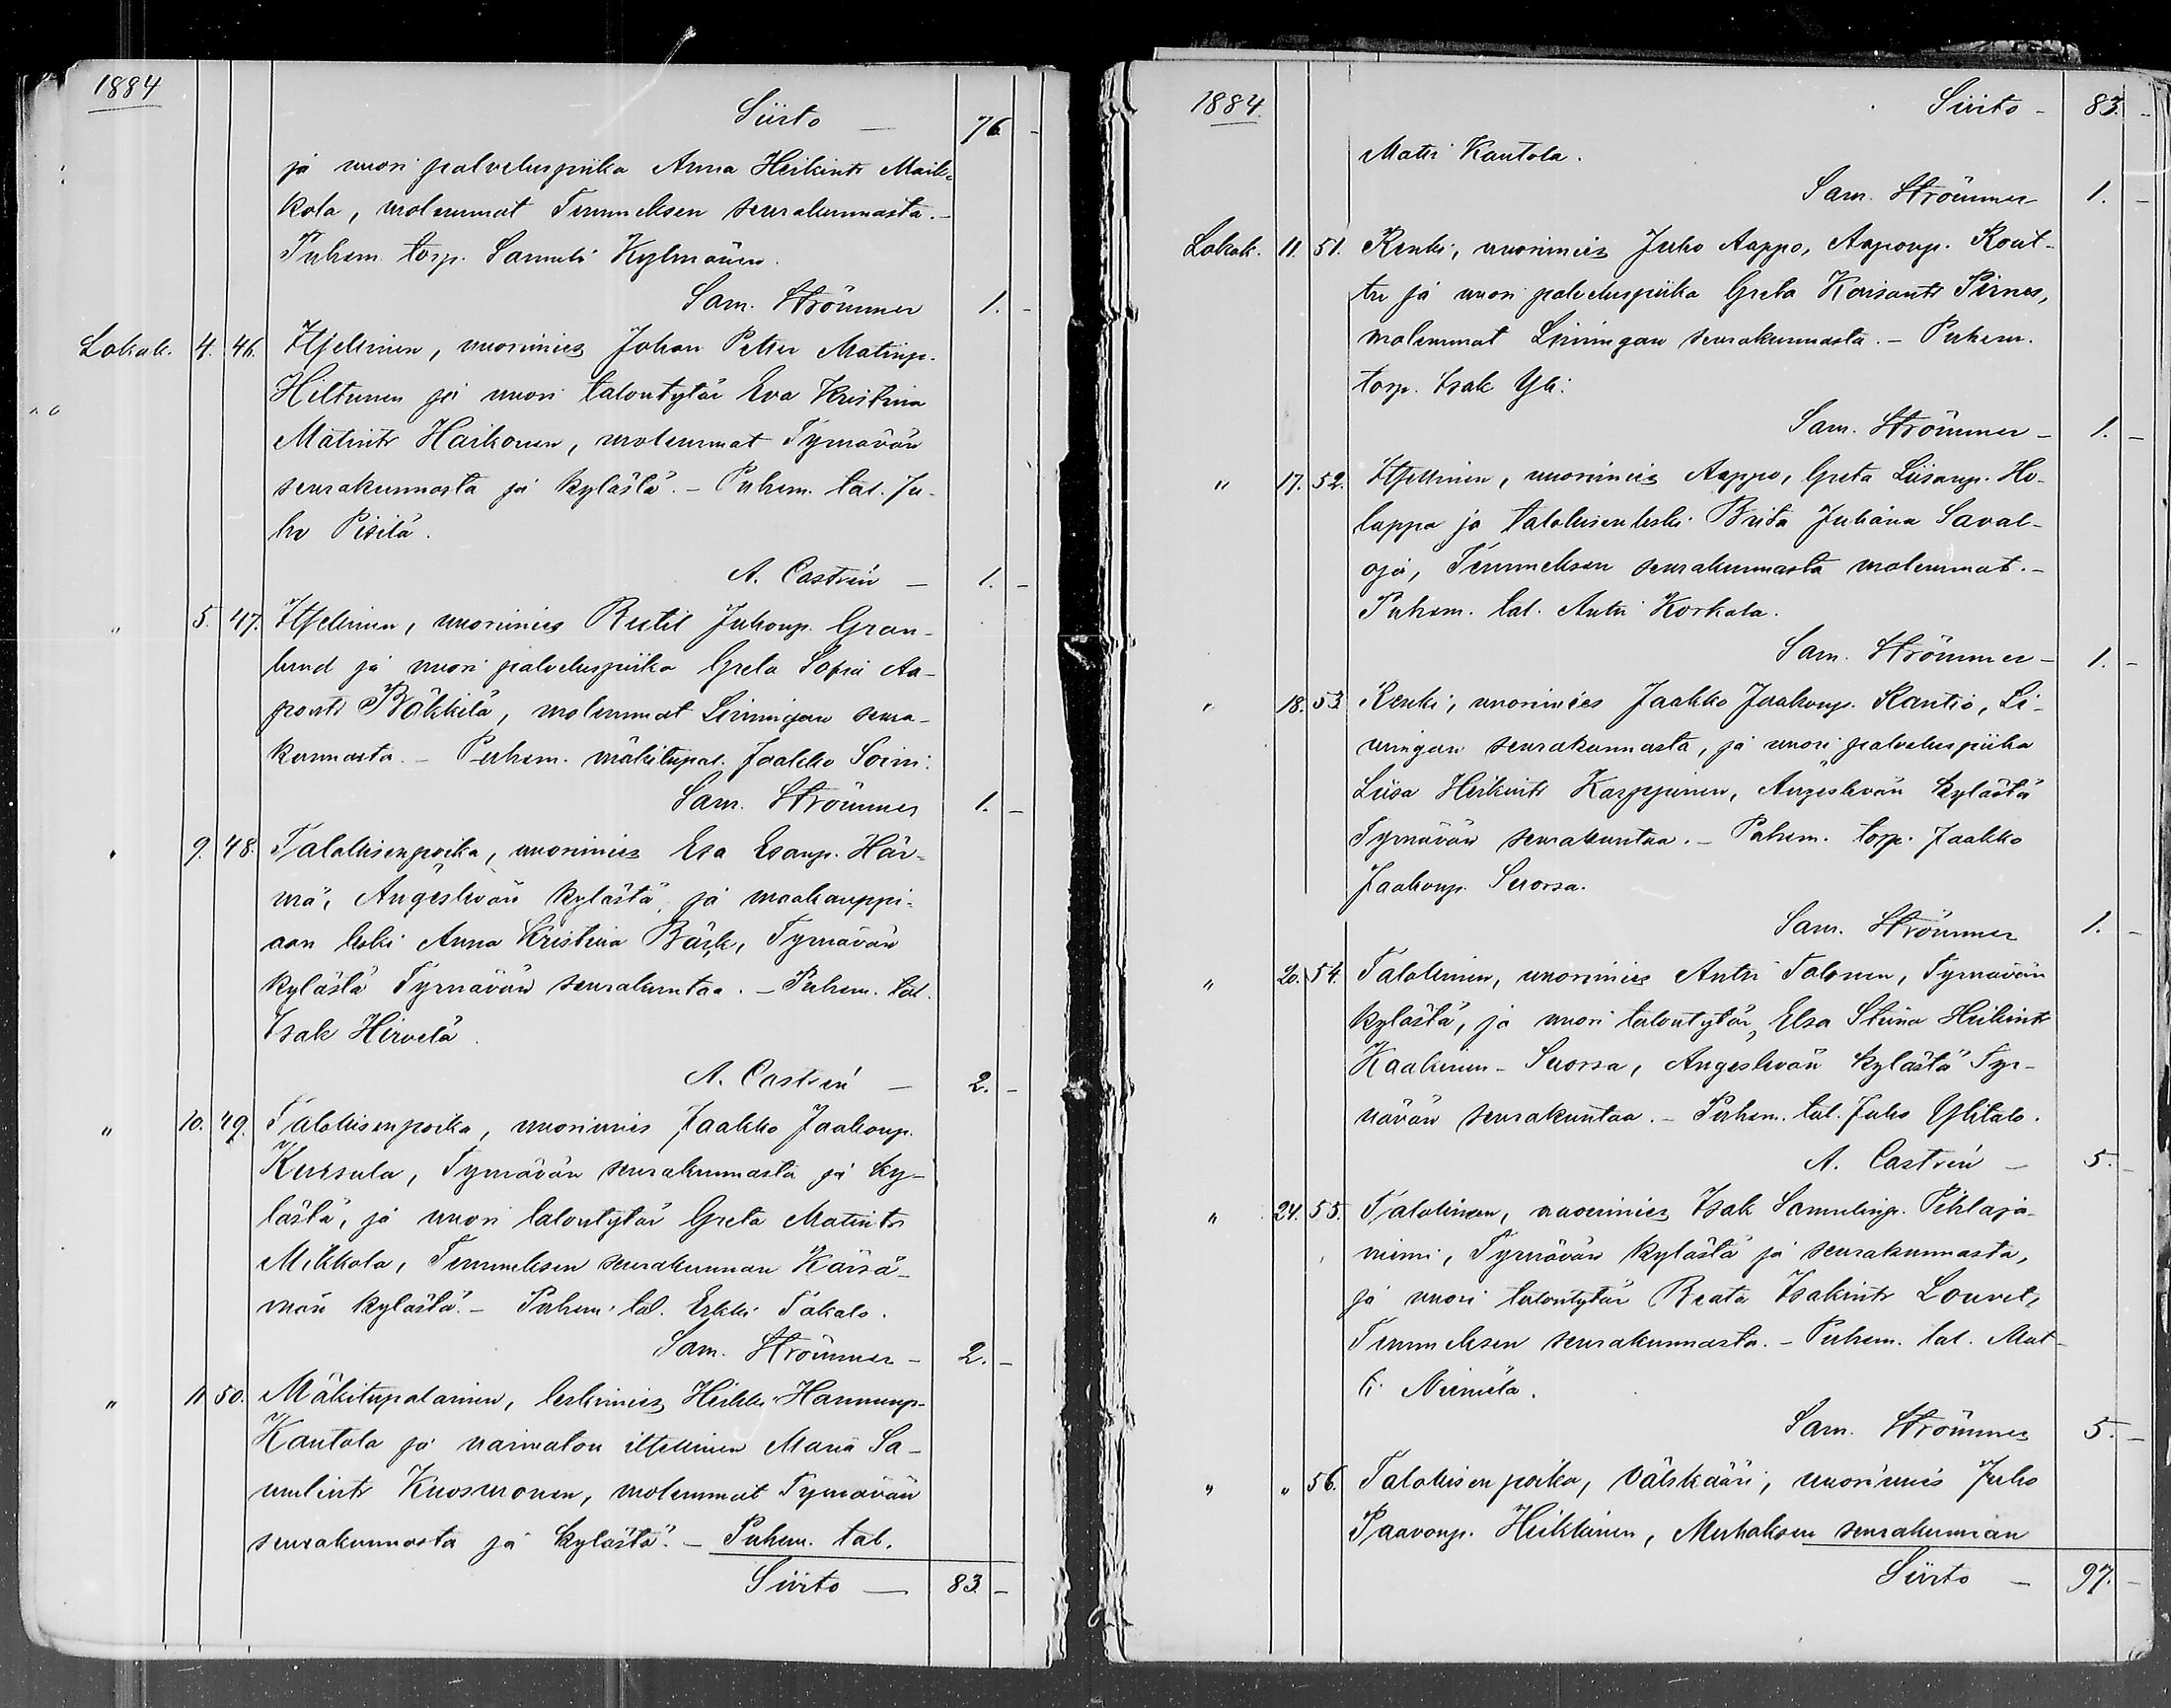 1884
Siirto — 76 -
ja nuori palveluspiika Anna Heikintr Maik-
kola, molemmat Temmeksen seurakunnasta. -
Puhem. torp. Samuli Kylmänen.
Sam. Strömmer 1. -
Lokak. 4. 46. Itsellinen, nuorimies Johan Petter Matinp.
Hiltunen ja nuori talontytär Eva Kristina
Matintr Haikonen, molemmat Tyrnävän
seurakunnasta ja kylästä. - Puhem. tal. Ju-
ho Pisilä.
A. Castrén — 1. -
" 5. 47. Itsellinen, nuorimies Rutil Juhonp. Gran-
lund ja nuori palveluspiika Greta Sofia Aa-
pontr Väkkilä, molemmat Limingan seura-
kunnasta. - Puhem. mäkitupal. Jaakko Soini.
Sam. Strömmer 1. -
" 9. 48. Talollisenpoika, nuorimies Esa Esanp. Här-
mä, Ängeslevän kylästä, ja maakauppi-
aan leski Anna Kristina Bäck, Tyrnävän
kylästä Tyrnävän seurakuntaa. - Puhem. tal.
Isak Hirvelä.
A. Castrén — 2. -
" 10. 49. Talollisenpoika, nuorimies Jaakko Jaakonp.
Keisula, Tyrnävän seurakunnasta ja ky-
lästä, ja nuori talontytär Greta Matintr
Mikkola, Temmeksen seurakunnan Kärsä-
män kylästä. - Puhem. tal. Erkki Takalo.
Sam. Strömmer - 2. -
" 11 50. Mäkitupalainen, leskimies Heikki Hannunp.
Kantola ja naimaton itsellinen Maria Sa-
mulintr Kuosmonen, molemmat Tyrnävän
seurakunnasta ja kylästä. - Puhem. tal.
Siirto — 83 -
1884.
Siirto - 83. -
Matti Kantola.
Sam. Strömmer 1. -
Lokak. 11. 51. Renki, nuorimies Juho Aappo, Aaponp. Kout-
tu ja nuori palveluspiika Greta Kaisantr Pirnes,
molemmat Limingan seurakunnasta. - Puhem.
torp. Isak Yli.
Sam. Strömmer - 1. -
" 17. 52. Itsellinen, nuorimies Aappo, Greta Liisanp. Ho-
lappa ja talollisen leski Brita Juliana Saval-
oja, Temmeksen seurakunnasta molemmat. -
Puhem. tal. Antti Korkala.
Sam. Strömmer - 1. -
" 18. 53. Renki, nuorimies Jaakko Jaakonp. Rantio, Li-
mingan seurakunnasta, ja nuori palveluspiika
Liisa Heikintr Karppinen, Ängeslevän kylästä
Tyrnävän seurakuntaa. - Puhem. torp. Jaakko
Jaakonp. Suorsa.
Sam. Strömmer 1. -
" 20. 54. Talollinen, nuorimies Antti Tolonen, Tyrnävän
kylästä, ja nuori talontytär, Elsa Stiina Heikintr
Kaakinen-Suorsa, Ängeslevän kylästä Tyr-
nävän seurakuntaa. - Puhem. tal. Juho Ylitalo.
A. Castrén — 5. -
" 24. 55. Talollinen, nuorimies Isak Samulinp. Pihlaja-
niemi, Tyrnävän kylästä ja seurakunnasta,
ja nuori talontytär Reata Isakintr Louvet,
Temmeksen seurakunnasta. - Puhem. tal. Mat-
ti Niemelä.
Sam. Strömmer 5. -
" " 56. Talollisen poika, Välskääri, nuorimies Juho
Paavonp. Heikkinen, Muhoksen seurakunnan
Siirto - 97. -